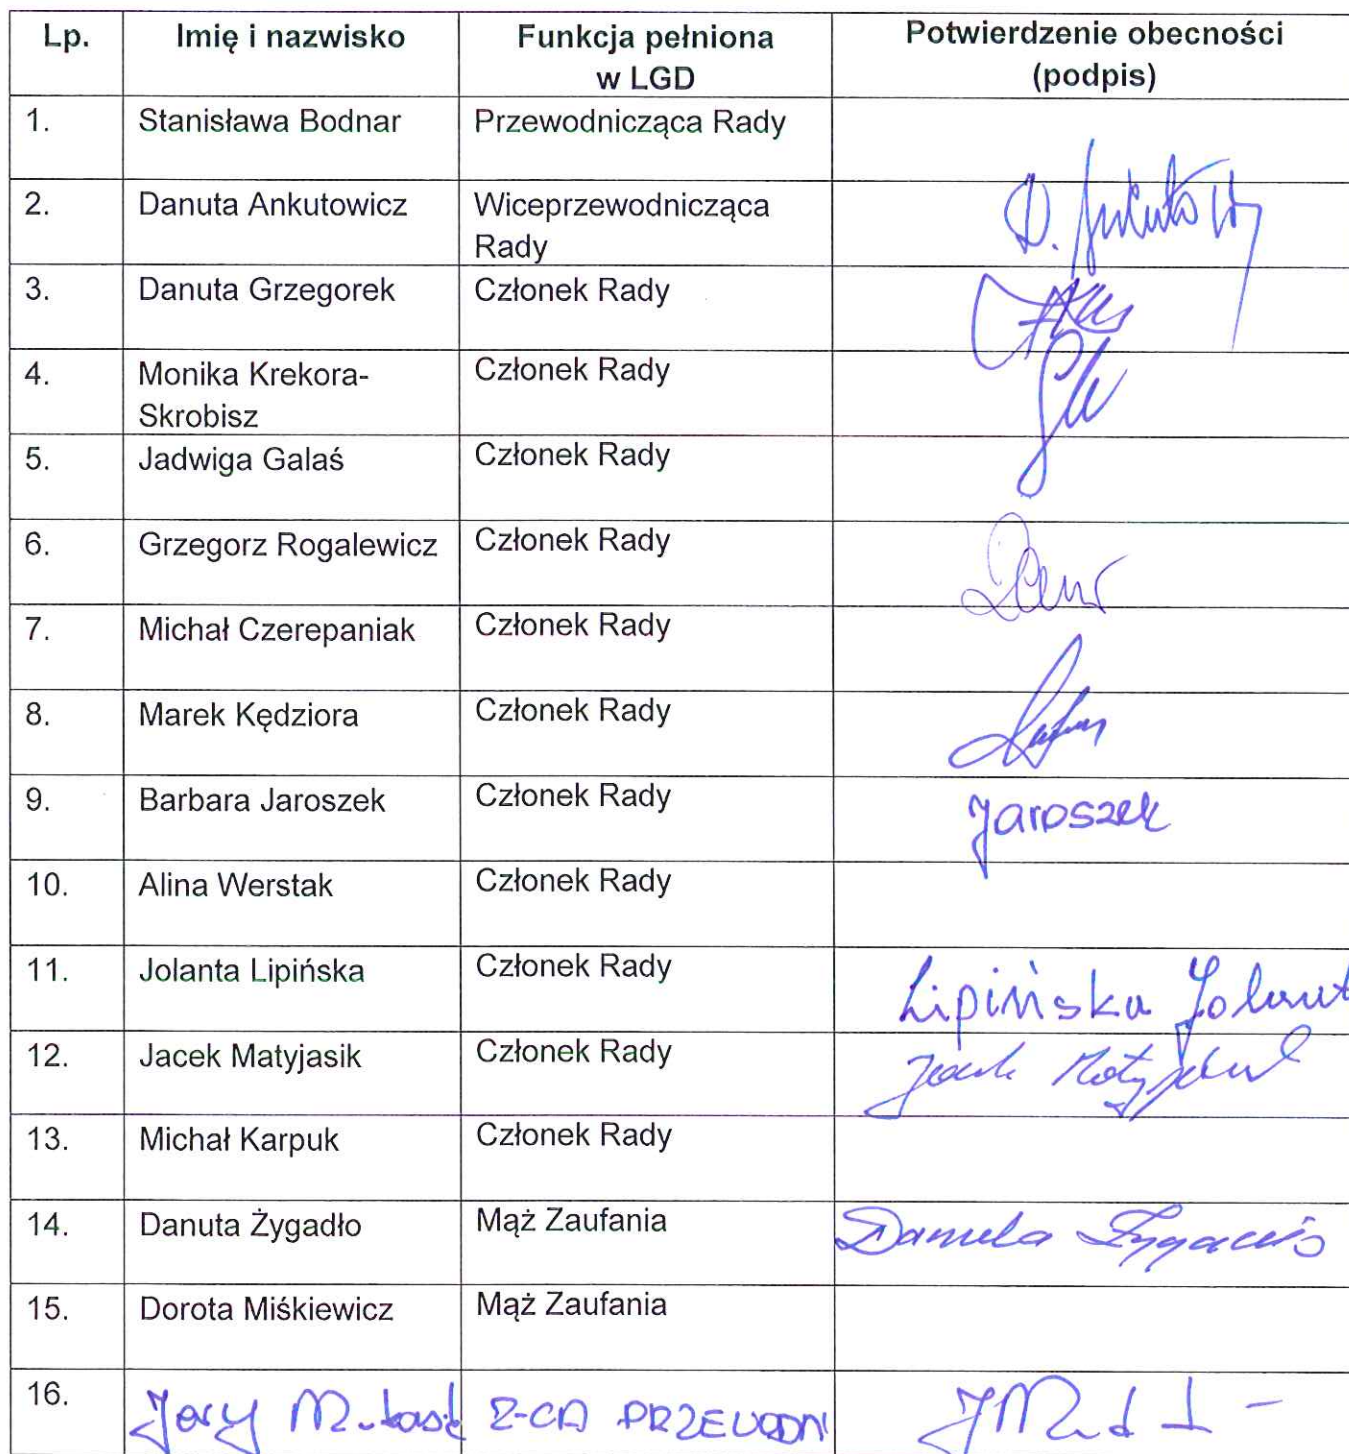 Lp. Imię i nazwisko Funkcja pełniona Potwierdzenie obecności
w LGD (podpis)
1. Stanisława Bodnar Przewodnicząca Rady
2. Danuta Ankutowicz Wiceprzewodnicząca
Rady
3. Danuta Grzegorek Członek Rady
4. Monika Krekora- Członek Rady
Skrobisz
5. Jadwiga Galaś Członek Rady
6. Grzegorz Rogalewicz Członek Rady
7. Michał Czerepaniak Członek Rady
8. Marek Kędziora Członek Rady
9. Barbara Jaroszek Członek Rady Jaroszek
10. Alina Werstak Członek Rady
11. Jolanta Lipińska Członek Rady Lipińska Jolant
12. Jacek Matyjasik Członek Rady Jacek Matyjasik
13. Michał Karpuk Członek Rady
14. Danuta Żygadło Mąż Zaufania Danuta Żygadło
15. Dorota Miśkiewicz Mąż Zaufania
16. Jerzy Z-CA PRZEWODNI